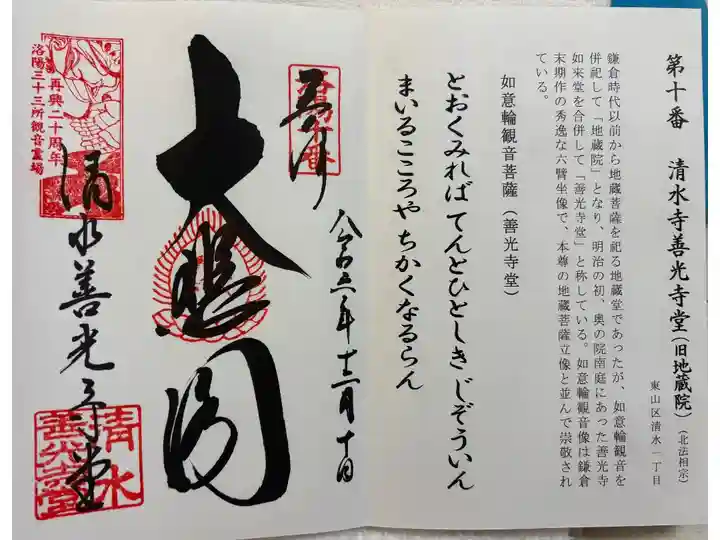 第十番 清水寺善光寺堂(旧地蔵院)(北法相宗)
東山区清水一丁目
鎌倉時代以前から地蔵菩薩を祀る地蔵堂であったが、如意輪観音を
併祀して「地蔵院」となり、明治の初、奥の院南庭にあった善光寺
如来堂を合併して「善光寺堂」と称している。如意輪観音像は鎌倉
末期作の秀逸な六臂坐像で、本尊の地蔵菩薩立像と並んで崇敬され
ている。
如意輪観音菩薩(善光寺堂)
とおくみれば てんとひとしき じぞういん
まいるこころや ちかくなるらん
奉拝
洛陽十番
令和六年十二月十日
大悲閣
再興二十周年
洛陽三十三所観音霊場
清水善光寺堂
清水
善光寺堂